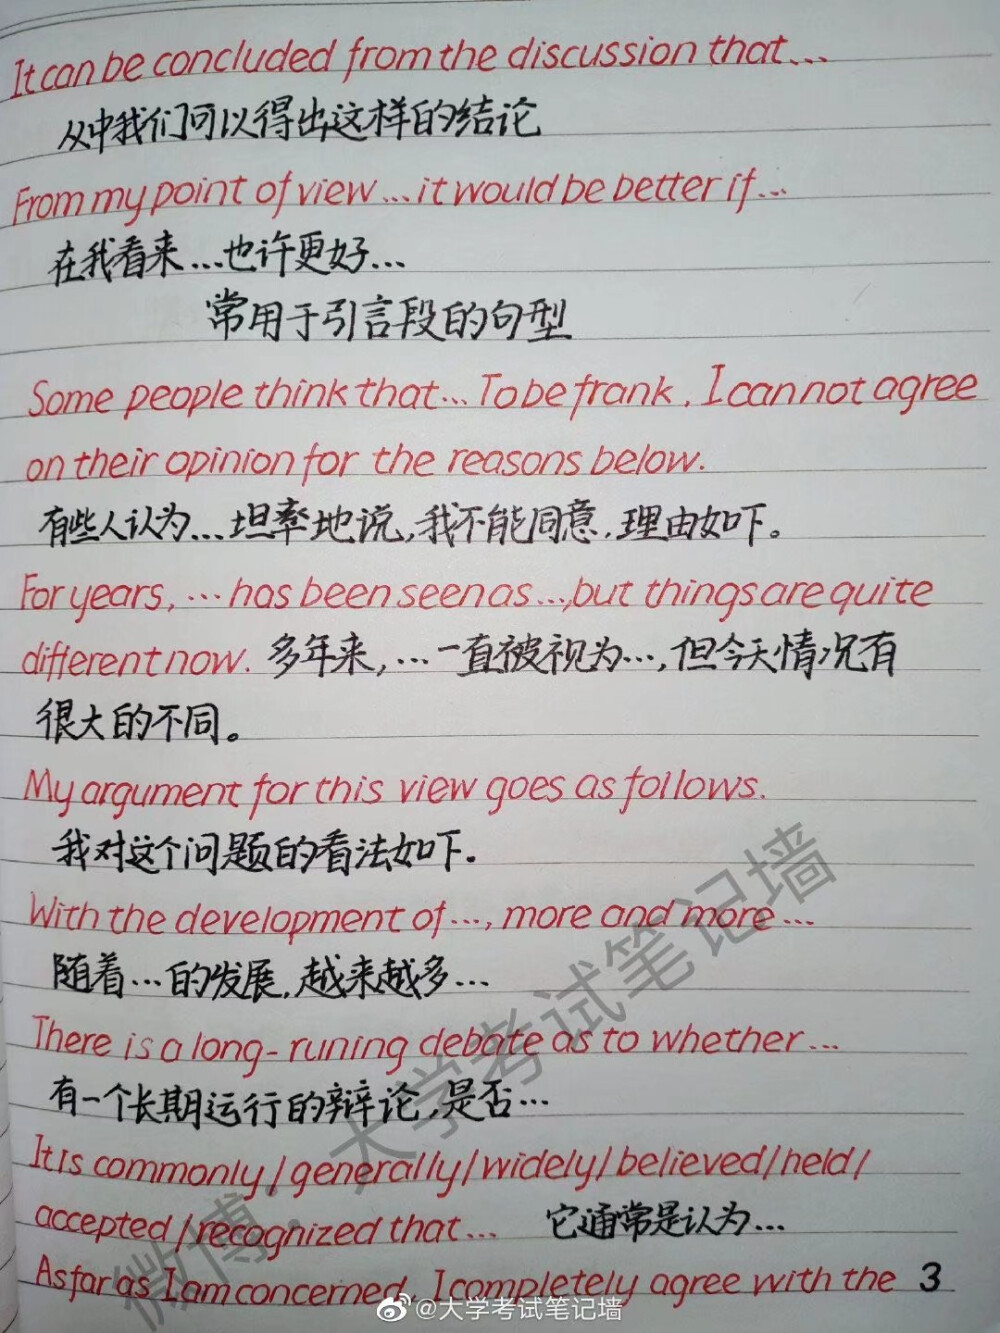 It can be concluded from the discussion that...
从中我们可以得出这样的结论
From my point of view...it would be better if...
在我看来...也许更好...
常用于引言段的句型
Some people think that...To be frank, I can not agree
on their opinion for the reasons below.
有些人认为...坦率地说,我不能同意,理由如下。
For years, ...has been seen as...,but things are quite
different now. 多年来,...一直被视为...,但今天情况有
很大的不同。
My argument for this view goes as follows.
我对这个问题的看法如下。
With the development of..., more and more...
随着...的发展,越来越多...
There is a long-runing debate as to whether...
有一个长期运行的辩论,是否...
It is commonly/generally/widely/believed/held/
accepted/recognized that... 它通常是认为...
As far as I am concerned, I completely agree with the 3
微博:大学考试笔记墙
@大学考试笔记墙